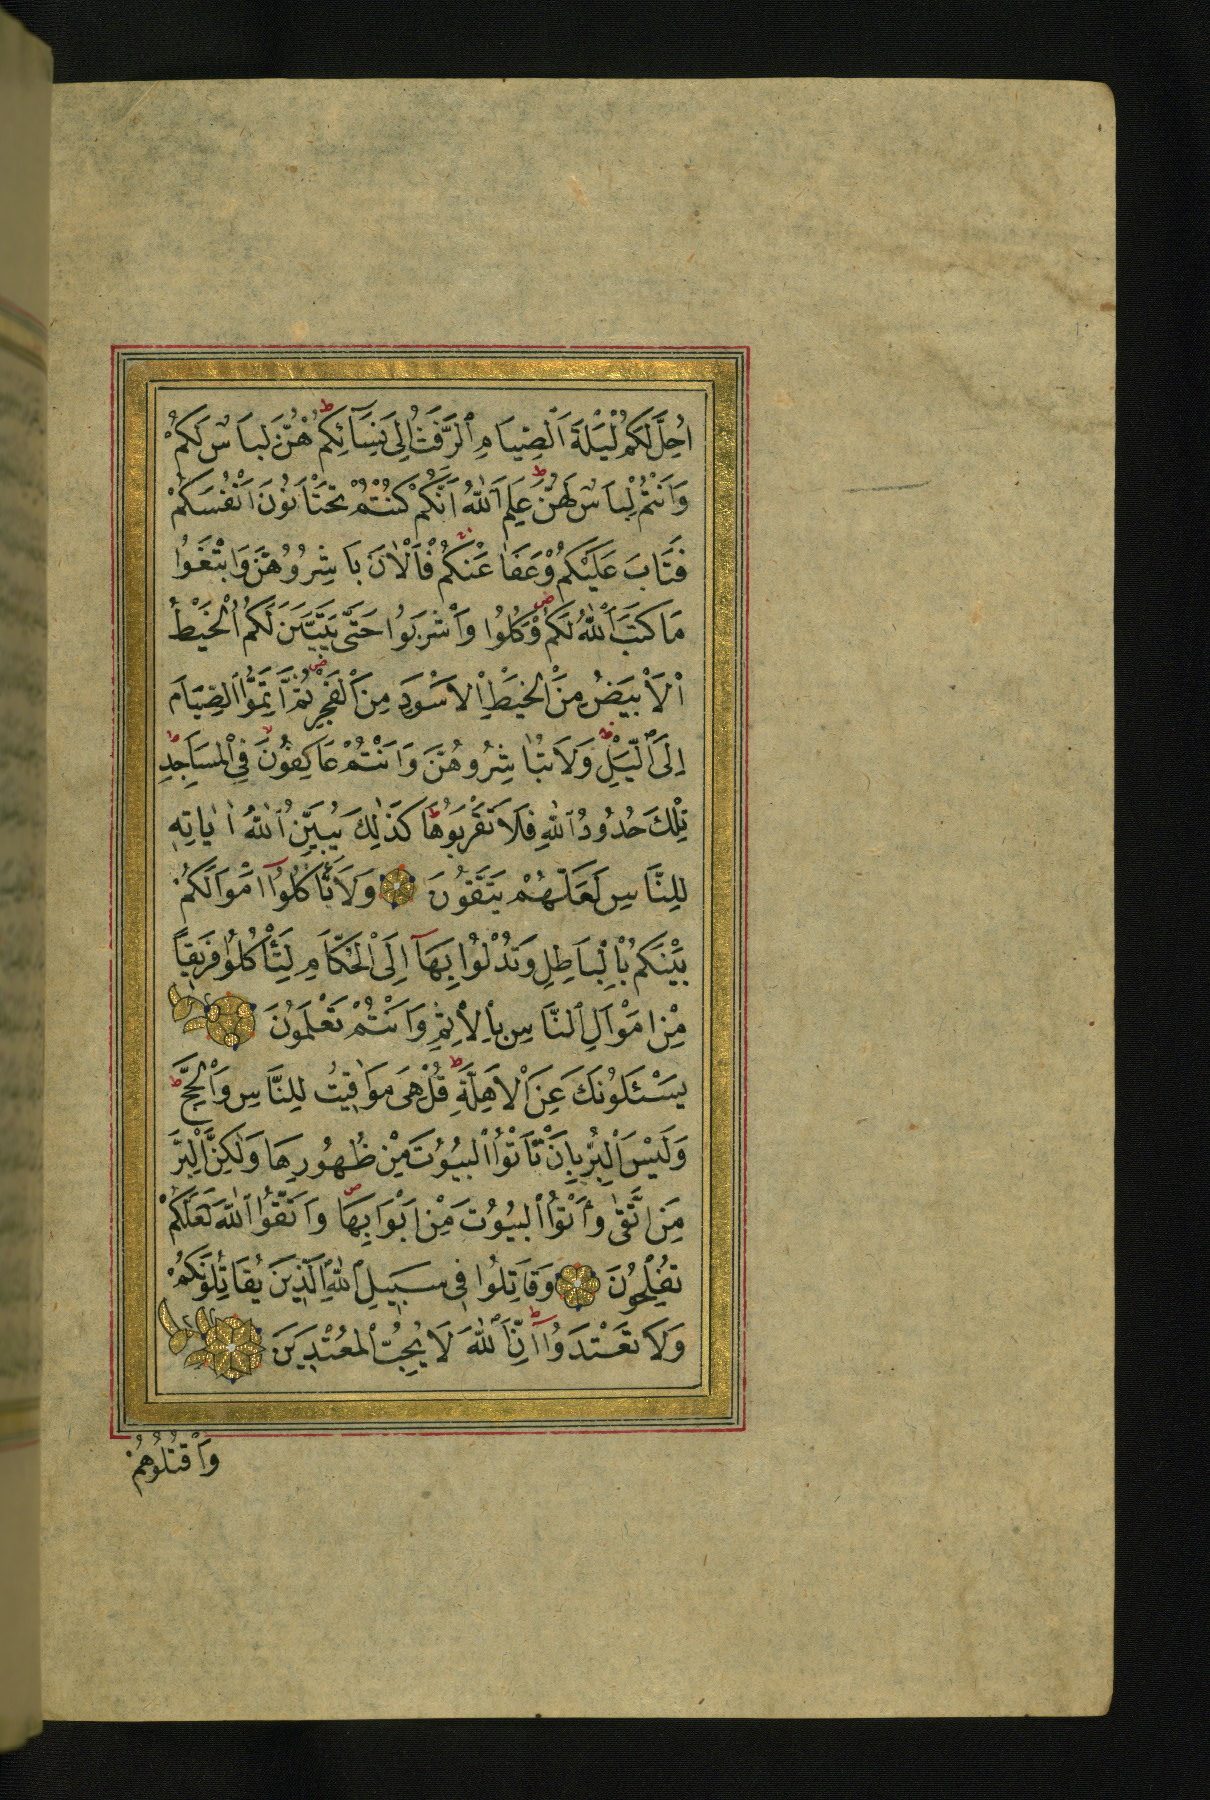 اُحِلَّ لَكُمْ لَيْلَةَ الصِّيَامِ الرَّفَثُ اِلٰى نِسَآئِكُمْ هُنَّ لِبَاسٌ لَكُمْ
وَاَنْتُمْ لِبَاسٌ لَهُنَّ عَلِمَ اللّٰهُ اَنَّكُمْ كُنْتُمْ تَخْتَانُونَ اَنْفُسَكُمْ
فَتَابَ عَلَيْكُمْ وَعَفَا عَنْكُمْ فَالْاٰنَ بَاشِرُوهُنَّ وَابْتَغُوا
مَا كَتَبَ اللّٰهُ لَكُمْ وَكُلُوا وَاشْرَبُوا حَتّٰى يَتَبَيَّنَ لَكُمُ الْخَيْطُ
الْاَبْيَضُ مِنَ الْخَيْطِ الْاَسْوَدِ مِنَ الْفَجْرِ ثُمَّ اَتِمُّوا الصِّيَامَ
اِلَى الَّيْلِ وَلَا تُبَاشِرُوهُنَّ وَاَنْتُمْ عَاكِفُونَ فِي الْمَسَاجِدِ
تِلْكَ حُدُودُ اللّٰهِ فَلَا تَقْرَبُوهَا كَذٰلِكَ يُبَيِّنُ اللّٰهُ اٰيَاتِهِ
لِلنَّاسِ لَعَلَّهُمْ يَتَّقُونَ وَلَا تَأْكُلُوا اَمْوَالَكُمْ
بَيْنَكُمْ بِالْبَاطِلِ وَتُدْلُوا بِهَآ اِلَى الْحُكَّامِ لِتَأْكُلُوا فَرِيقًا
مِنْ اَمْوَالِ النَّاسِ بِالْاِثْمِ وَاَنْتُمْ تَعْلَمُونَ
يَسْئَلُونَكَ عَنِ الْاَهِلَّةِ قُلْ هِيَ مَوَاقِيتُ لِلنَّاسِ وَالْحَجِّ
وَلَيْسَ الْبِرُّ بِاَنْ تَأْتُوا الْبُيُوتَ مِنْ ظُهُورِهَا وَلٰكِنَّ الْبِرَّ
مَنِ اتَّقٰى وَأْتُوا الْبُيُوتَ مِنْ اَبْوَابِهَا وَاتَّقُوا اللّٰهَ لَعَلَّكُمْ
تُفْلِحُونَ وَقَاتِلُوا فِي سَبِيلِ اللّٰهِ الَّذِينَ يُقَاتِلُونَكُمْ
وَلَا تَعْتَدُوا اِنَّ اللّٰهَ لَا يُحِبُّ الْمُعْتَدِينَ
وَاقْتُلُوهُمْ